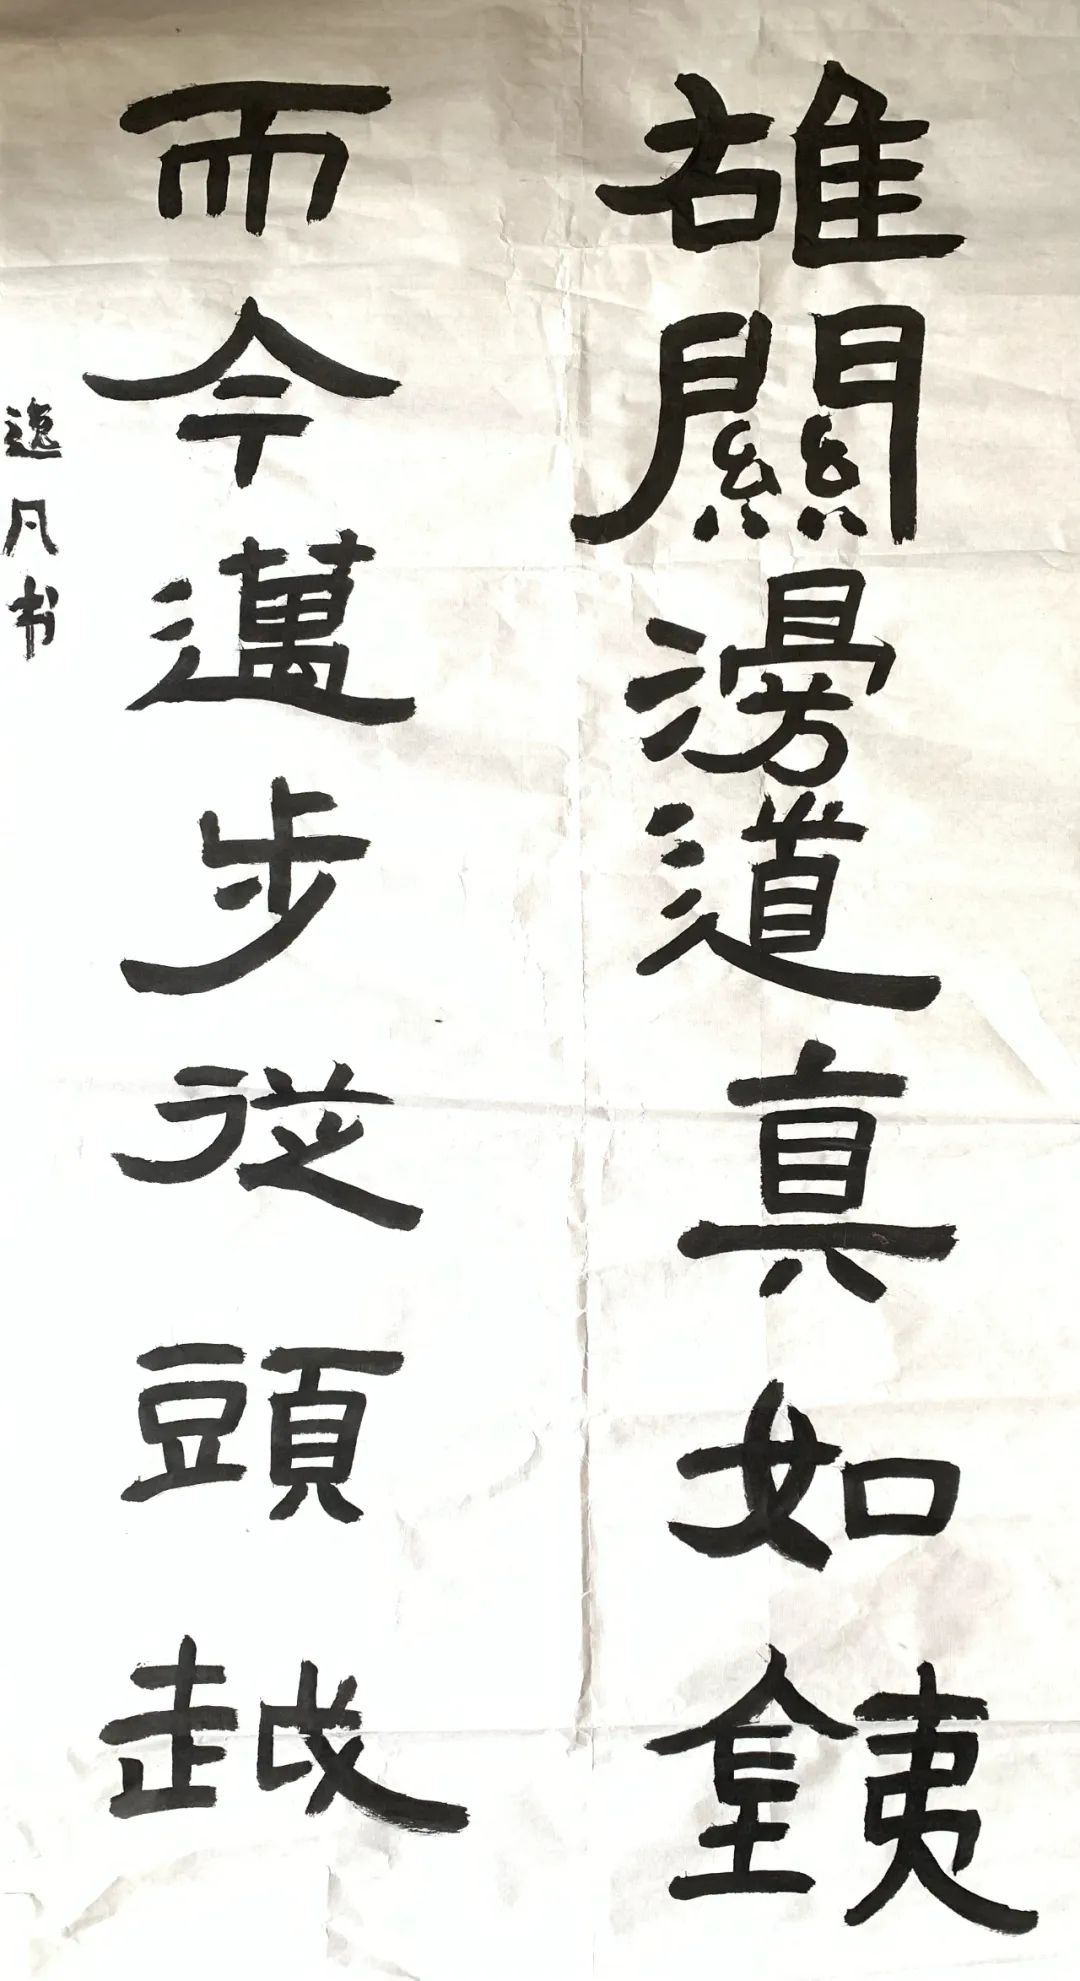 雄關漫道真如銕
而今邁步從頭越
逸凡书